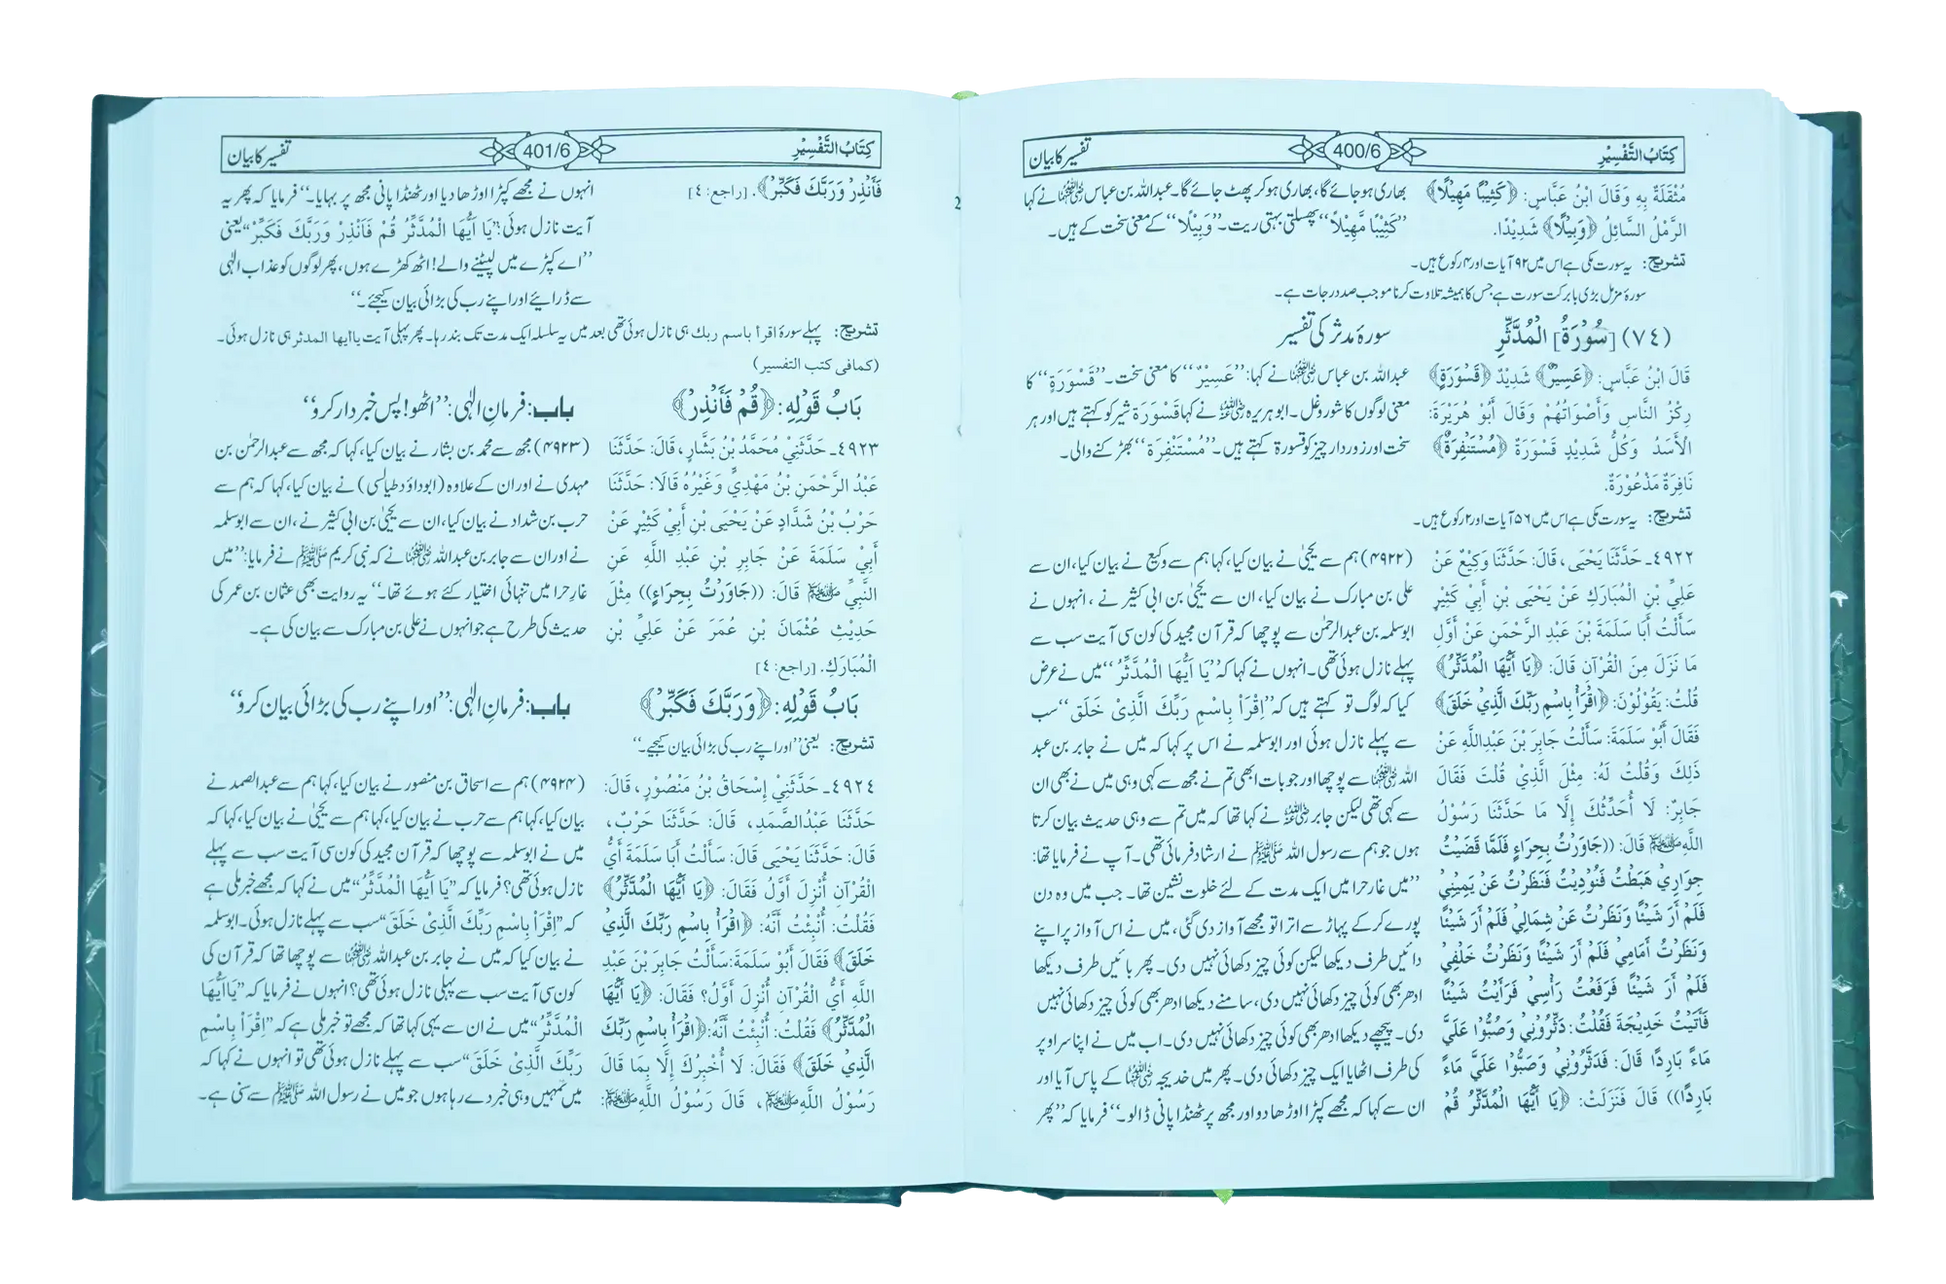 كِتَابُ التَّفْسِيْرِ 400/6 تفسیر کا بیان
مُثْقَلَةٌ بِهِ وَقَالَ ابْنُ عَبَّاسٍ: ﴿كَثِيْبًا مَهِيْلًا﴾
الرَّمْلُ السَّائِلُ ﴿وَبِيلًا﴾ شَدِيْدًا.
بھاری ہو جائے گا، بھاری ہو کر پھٹ جائے گا۔ عبداللہ بن عباس رضی اللہ عنہما نے کہا
’’كَثِيْبًا مَّهِيْلًا‘‘ پھسلتی بہتی ریت۔ ’’وَبِيْلًا‘‘ کے معنی سخت کے ہیں۔
تشریح: یہ سورت مکی ہے اس میں ۹۲ آیات اور ۴ رکوع ہیں۔
سورۂ مزمل بڑی بابرکت سورت ہے جس کا ہمیشہ تلاوت کرنا موجب صد درجات ہے۔
(٧٤) [سُوْرَةُ] الْمُدَّثِّرِ
سورۂ مدثر کی تفسیر
قَالَ ابْنُ عَبَّاسٍ: ﴿عَسِيْرٌ﴾ شَدِيْدٌ ﴿قَسْوَرَةٍ﴾
رِكْزُ النَّاسِ وَأَصْوَاتُهُمْ وَقَالَ أَبُوْ هُرَيْرَةَ:
الْأَسَدُ وَكُلُّ شَدِيْدٍ قَسْوَرَةٌ ﴿مُسْتَنْفِرَةٌ﴾
نَافِرَةٌ مَذْعُوْرَةٌ.
عبداللہ بن عباس رضی اللہ عنہما نے کہا: ’’عَسِيْرٌ‘‘ کا معنی سخت۔ ’’قَسْوَرَةٍ‘‘ کا
معنی لوگوں کا شور و غل۔ ابو ہریرہ رضی اللہ عنہ نے کہا قَسْوَرَة شیر کو کہتے ہیں اور ہر
سخت اور زور دار چیز کو قسورة کہتے ہیں۔ ’’مُسْتَنْفِرَة‘‘ بھڑکنے والی۔
تشریح: یہ سورت مکی ہے اس میں ۵۶ آیات اور ۲ رکوع ہیں۔
٤٩٢٢ـ حَدَّثَنَا يَحْيَى، قَالَ: حَدَّثَنَا وَكِيْعٌ عَنْ
عَلِيِّ بْنِ الْمُبَارَكِ عَنْ يَحْيَى بْنِ أَبِيْ كَثِيْرٍ
سَأَلْتُ أَبَا سَلَمَةَ بْنَ عَبْدِ الرَّحْمَنِ عَنْ أَوَّلِ
مَا نَزَلَ مِنَ الْقُرْآنِ قَالَ: ﴿يَا أَيُّهَا الْمُدَّثِّرُ﴾
قُلْتُ: يَقُوْلُوْنَ: ﴿اقْرَأْ بِاسْمِ رَبِّكَ الَّذِيْ خَلَقَ﴾
فَقَالَ أَبُوْ سَلَمَةَ: سَأَلْتُ جَابِرَ بْنَ عَبْدِاللَّهِ عَنْ
ذَلِكَ وَقُلْتُ لَهُ: مِثْلَ الَّذِيْ قُلْتَ فَقَالَ
جَابِرٌ: لَا أُحَدِّثُكَ إِلَّا مَا حَدَّثَنَا رَسُوْلُ
اللَّهِ ﷺ قَالَ: ((جَاوَرْتُ بِحِرَاءٍ فَلَمَّا قَضَيْتُ
جِوَارِيْ هَبَطْتُ فَنُوْدِيْتُ فَنَظَرْتُ عَنْ يَمِيْنِيْ
فَلَمْ أَرَ شَيْئًا وَنَظَرْتُ عَنْ شِمَالِيْ فَلَمْ أَرَ شَيْئًا
وَنَظَرْتُ أَمَامِيْ فَلَمْ أَرَ شَيْئًا وَنَظَرْتُ خَلْفِيْ
فَلَمْ أَرَ شَيْئًا فَرَفَعْتُ رَأْسِيْ فَرَأَيْتُ شَيْئًا
فَأَتَيْتُ خَدِيْجَةَ فَقُلْتُ: دَثِّرُوْنِيْ وَصُبُّوْا عَلَيَّ
مَاءً بَارِدًا قَالَ: فَدَثَّرُوْنِيْ وَصَبُّوْا عَلَيَّ مَاءً
بَارِدًا)) قَالَ فَنَزَلَتْ: ﴿يَا أَيُّهَا الْمُدَّثِّرُ قُمْ
(۴۹۲۲) ہم سے یحییٰ نے بیان کیا، کہا ہم سے وکیع نے بیان کیا، ان سے
علی بن مبارک نے بیان کیا، ان سے یحییٰ بن ابی کثیر نے، انہوں نے
ابوسلمہ بن عبدالرحمٰن سے پوچھا کہ قرآن مجید کی کون سی آیت سب سے
پہلے نازل ہوئی تھی۔ انہوں نے کہا کہ ’’يَا أَيُّهَا الْمُدَّثِّرُ‘‘ میں نے عرض
کیا کہ لوگ تو کہتے ہیں کہ ’’اِقْرَأْ بِاسْمِ رَبِّكَ الَّذِيْ خَلَقَ‘‘ سب
سے پہلے نازل ہوئی اور ابوسلمہ نے اس پر کہا کہ میں نے جابر بن عبد
اللہ رضی اللہ عنہما سے پوچھا اور جو بات ابھی تم نے مجھ سے کہی وہی میں نے بھی ان
سے کہی تھی لیکن جابر رضی اللہ عنہ نے کہا تھا کہ میں تم سے وہی حدیث بیان کرتا
ہوں جو ہم سے رسول اللہ ﷺ نے ارشاد فرمائی تھی۔ آپ نے فرمایا تھا:
’’میں غار حرا میں ایک مدت کے لئے خلوت نشین تھا۔ جب میں وہ دن
پورے کر کے پہاڑ سے اترا تو مجھے آواز دی گئی، میں نے اس آواز پر اپنے
دائیں طرف دیکھا لیکن کوئی چیز دکھائی نہیں دی۔ پھر بائیں طرف دیکھا
ادھر بھی کوئی چیز دکھائی نہیں دی، سامنے دیکھا ادھر بھی کوئی چیز دکھائی نہیں
دی۔ پیچھے دیکھا ادھر بھی کوئی چیز دکھائی نہیں دی۔ اب میں نے اپنا سر اوپر
کی طرف اٹھایا ایک چیز دکھائی دی۔ پھر میں خدیجہ رضی اللہ عنہا کے پاس آیا اور
ان سے کہا کہ مجھے کپڑا اوڑھا دو اور مجھ پر ٹھنڈا پانی ڈالو۔‘‘ فرمایا کہ ’’پھر
كِتَابُ التَّفْسِيْرِ 401/6 تفسیر کا بیان
فَأَنْذِرْ وَرَبَّكَ فَكَبِّرْ﴾. [راجع: ٤]
انہوں نے مجھے کپڑا اوڑھا دیا اور ٹھنڈا پانی مجھ پر بہایا۔‘‘ فرمایا کہ پھر یہ
آیت نازل ہوئی: ’’يَا أَيُّهَا الْمُدَّثِّرُ قُمْ فَأَنْذِرْ وَرَبَّكَ فَكَبِّرْ‘‘ یعنی
’’اے کپڑے میں لپٹنے والے! اٹھ کھڑے ہوں، پھر لوگوں کو عذاب الٰہی
سے ڈرائیے اور اپنے رب کی بڑائی بیان کیجئے۔‘‘
تشریح: پہلے سورۃ اقرأ باسم ربك ہی نازل ہوئی تھی بعد میں یہ سلسلہ ایک مدت تک بند رہا۔ پھر پہلی آیت یاایھا المدثر ہی نازل ہوئی۔
(کمافی کتب التفسیر)
بَابُ قَوْلِهِ: ﴿قُمْ فَأَنْذِرْ﴾
باب: فرمانِ الٰہی: ’’اٹھو! پس خبردار کرو‘‘
٤٩٢٣ـ حَدَّثَنِيْ مُحَمَّدُ بْنُ بَشَّارٍ، قَالَ: حَدَّثَنَا
عَبْدُ الرَّحْمَنِ بْنُ مَهْدِيٍّ وَغَيْرُهُ قَالَا: حَدَّثَنَا
حَرْبُ بْنُ شَدَّادٍ عَنْ يَحْيَى بْنِ أَبِيْ كَثِيْرٍ عَنْ
أَبِيْ سَلَمَةَ عَنْ جَابِرِ بْنِ عَبْدِ اللَّهِ عَنِ
النَّبِيِّ ﷺ قَالَ: ((جَاوَرْتُ بِحِرَاءٍ)) مِثْلَ
حَدِيْثِ عُثْمَانَ بْنِ عُمَرَ عَنْ عَلِيِّ بْنِ
الْمُبَارَكِ. [راجع: ٤]
(۴۹۲۳) مجھ سے محمد بن بشار نے بیان کیا، کہا کہ مجھ سے عبدالرحمٰن بن
مہدی نے اور ان کے علاوہ (ابوداؤد طیالسی) نے بیان کیا، کہا کہ ہم سے
حرب بن شداد نے بیان کیا، ان سے یحییٰ بن ابی کثیر نے، ان سے ابوسلمہ
نے اور ان سے جابر بن عبداللہ رضی اللہ عنہما نے کہ نبی کریم ﷺ نے فرمایا: ’’میں
غار حرا میں تنہائی اختیار کئے ہوئے تھا۔‘‘ یہ روایت بھی عثمان بن عمر کی
حدیث کی طرح ہے جو انہوں نے علی بن مبارک سے بیان کی ہے۔
بَابُ قَوْلِهِ: ﴿وَرَبَّكَ فَكَبِّرْ﴾
باب: فرمانِ الٰہی: ’’اور اپنے رب کی بڑائی بیان کرو‘‘
تشریح: یعنی ’’اور اپنے رب کی بڑائی بیان کیجیے۔‘‘
٤٩٢٤ـ حَدَّثَنِيْ إِسْحَاقُ بْنُ مَنْصُوْرٍ، قَالَ:
حَدَّثَنَا عَبْدُالصَّمَدِ، قَالَ: حَدَّثَنَا حَرْبٌ،
قَالَ: حَدَّثَنَا يَحْيَى قَالَ: سَأَلْتُ أَبَا سَلَمَةَ أَيُّ
الْقُرْآنِ أُنْزِلَ أَوَّلُ فَقَالَ: ﴿يَا أَيُّهَا الْمُدَّثِّرُ﴾
فَقُلْتُ: أُنْبِئْتُ أَنَّهُ: ﴿اقْرَأْ بِاسْمِ رَبِّكَ الَّذِيْ
خَلَقَ﴾ فَقَالَ أَبُوْ سَلَمَةَ: سَأَلْتُ جَابِرَ بْنَ عَبْدِ
اللَّهِ أَيُّ الْقُرْآنِ أُنْزِلَ أَوَّلُ؟ فَقَالَ: ﴿يَا أَيُّهَا
الْمُدَّثِّرُ﴾ فَقُلْتُ: أُنْبِئْتُ أَنَّهُ: ﴿اقْرَأْ بِاسْمِ رَبِّكَ
الَّذِيْ خَلَقَ﴾ فَقَالَ: لَا أُخْبِرُكَ إِلَّا بِمَا قَالَ
رَسُوْلُ اللَّهِ ﷺ، قَالَ رَسُوْلُ اللَّهِ ﷺ:
(۴۹۲۴) ہم سے اسحاق بن منصور نے بیان کیا، کہا ہم سے عبدالصمد نے
بیان کیا، کہا ہم سے حرب نے بیان کیا، کہا ہم سے یحییٰ نے بیان کیا، کہا کہ
میں نے ابوسلمہ سے پوچھا کہ قرآن مجید کی کون سی آیت سب سے پہلے
نازل ہوئی تھی؟ فرمایا کہ ’’يَا أَيُّهَا الْمُدَّثِّرُ‘‘ میں نے کہا کہ مجھے خبر ملی ہے
کہ ’’اِقْرَأْ بِاسْمِ رَبِّكَ الَّذِيْ خَلَقَ‘‘ سب سے پہلے نازل ہوئی۔ ابوسلمہ
نے بیان کیا کہ میں نے جابر بن عبداللہ رضی اللہ عنہما سے پوچھا تھا کہ قرآن کی
کون سی آیت سب سے پہلی نازل ہوئی تھی؟ انہوں نے فرمایا کہ ’’يَاأَيُّهَا
الْمُدَّثِّرُ‘‘ میں نے ان سے یہی کہا تھا کہ مجھے تو خبر ملی ہے کہ ’’اِقْرَأْ بِاسْمِ
رَبِّكَ الَّذِيْ خَلَقَ‘‘ سب سے پہلے نازل ہوئی تھی تو انہوں نے کہا کہ
میں تمہیں وہی خبر دے رہا ہوں جو میں نے رسول اللہ ﷺ سے سنی ہے۔